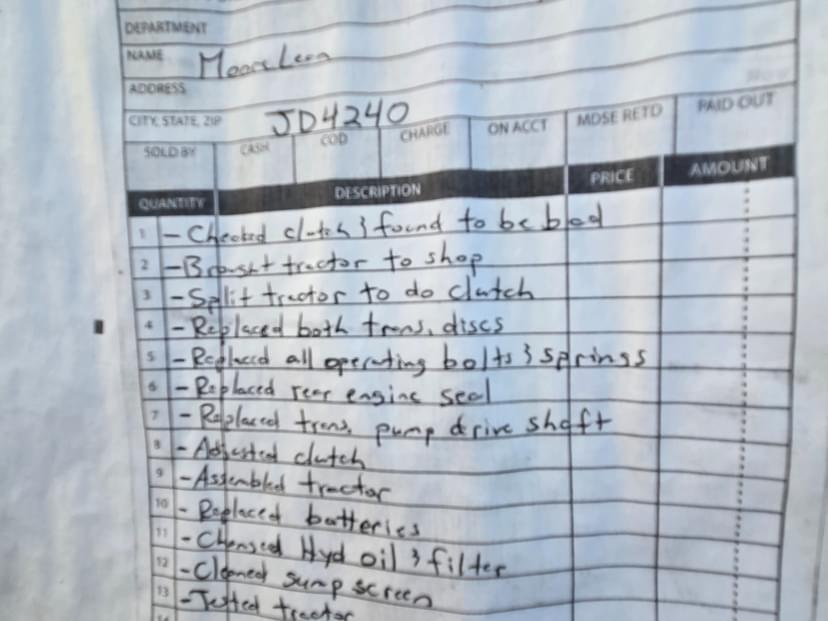 DEPARTMENT
NAME
ADDRESS
CITY, STATE, ZIP JD4240
SOLD BY CASH COD CHARGE ON ACCT MDSE RETD PAID OUT
QUANTITY DESCRIPTION PRICE AMOUNT
1 - Checked clutch & found to be bad
2 - Brought tractor to shop
3 - Split tractor to do clutch
4 - Replaced both trans. discs
5 - Replaced all operating bolts & springs
6 - Replaced rear engine seal
7 - Replaced trans. pump drive shaft
8 - Adjusted clutch
9 - Assembled tractor
10 - Replaced batteries
11 - Changed Hyd oil & filter
12 - Cleaned sump screen
13 - Tested tractor